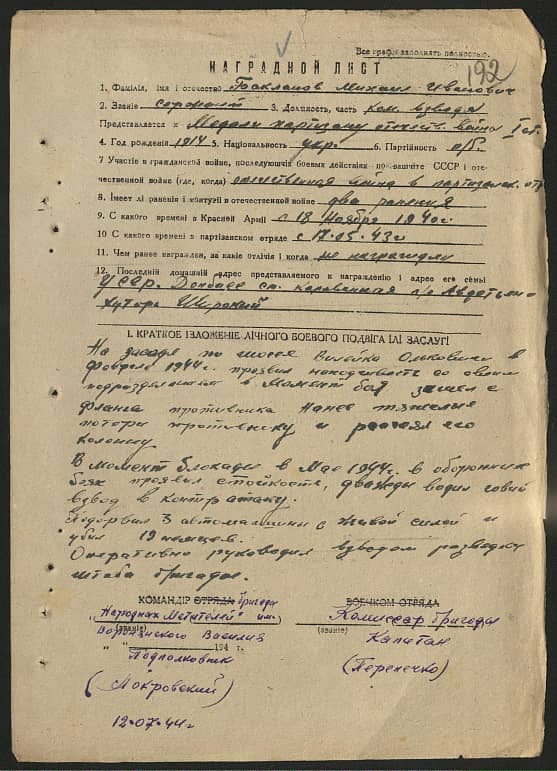 Все графы заполнять полностью.
192
НАГРАДНОЙ ЛИСТ
1. Фамілія, імя і отчество Бакланов Михаил Иванович
2. Званіе сержант 3. Должность, часть ком. взвода
Представляется к Медали партизану отечеств. война I ст.
4. Год рождения 1914 5. Національность укр. 6. Партійность б/п.
7 Участіе в гражданской войне, последуюшчіх боевых действіях по зашчіте СССР і оте-
чественной войне (где, когда) отечественная война в партизанск. отр.
8. Імеет лі раненія і контузіі в отечественной войне два ранения
9. С какого времені в Красной Армиі с 18 Ноября 1940г.
10 С какого времені в партізанском отряде с 17.05.43г
11. Чем ранее награжден, за какіе отлічія і когда не награждали
12. Последній домашній адрес представляемого к награжденію і адрес его семьі
УССР. Донбасс ст. п/о
Хутора Широкий
I. КРАТКОЕ ІЗЛОЖЕНІЕ ЛІЧНОГО БОЕВОГО ПОДВІГА ІЛІ ЗАСЛУГІ
На засаде по шоссе Вилейка в
феврале 1944г. проявил находчивость со своим
подразделением в момент боя зашел с
фланга противника Нанес тяжелые
потери противнику и его
колонну
В момент блокады в Мае 1944г. в оборонных
боях проявил стойкость, дважды водил свой
взвод в контратаку.
Подорвал 3 автомашины с живой силой и
убил 19 немцев.
Оперативно руководил взводом разведки
штаба бригады.
КОМАНДІР ОТРЯДА бригады
"Народных Мстителей" им.
(званіе)
Воронянского Василия
" " 194 г.
Подполковник
(Покровский)
12.07.44г
ВОЕНКОМ ОТРЯДА
Комиссар бригады
(званіе)
Капитан
(Перепечко)